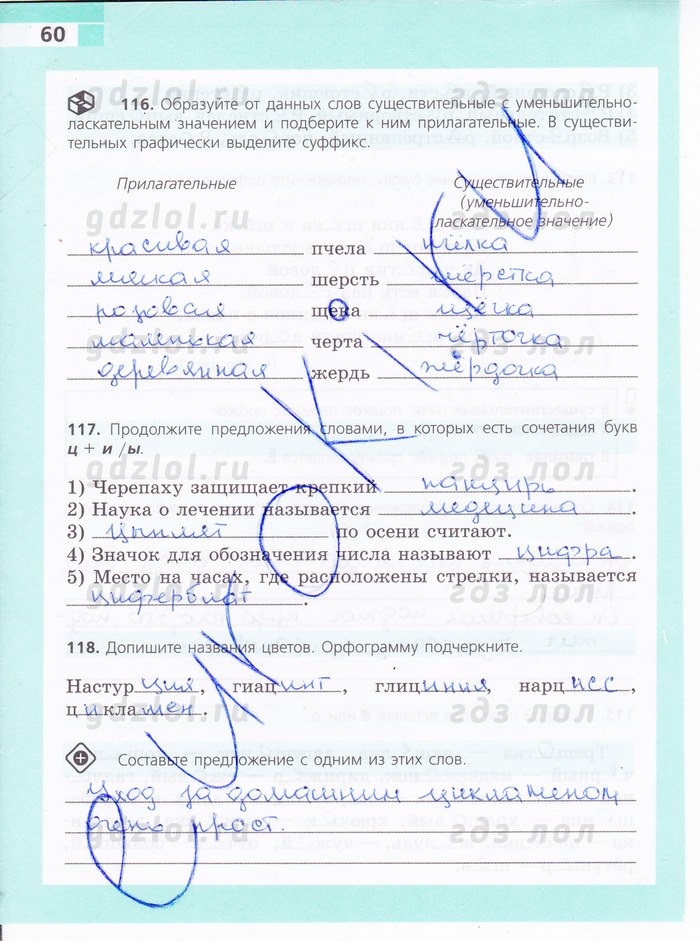 60
116. Образуйте от данных слов существительные с уменьшительно-
ласкательным значением и подберите к ним прилагательные. В существи-
тельных графически выделите суффикс.
Прилагательные Существительные
(уменьшительно-
ласкательное значение)
gdzlol.ru гдз лол
красивая пчела пчёлка
мягкая шерсть шёрстка
розовая щека щёчка
маленькая черта чёрточка
gdzlol.ru гдз лол
деревянная жердь жёрдочка
117. Продолжите предложения словами, в которых есть сочетания букв
ц + и /ы.
gdzlol.ru гдз лол
1) Черепаху защищает крепкий панцирь.
2) Наука о лечении называется медицина.
3) Цыплят по осени считают.
4) Значок для обозначения числа называют цифра.
5) Место на часах, где расположены стрелки, называется
циферблат.
gdzlol.ru гдз лол
118. Допишите названия цветов. Орфограмму подчеркните.
Настурция, гиацинт, глициния, нарцисс,
цикламен.
gdzlol.ru гдз лол
Составьте предложение с одним из этих слов.
Уход за домашним цикламеном
очень прост.
gdzlol.ru гдз лол